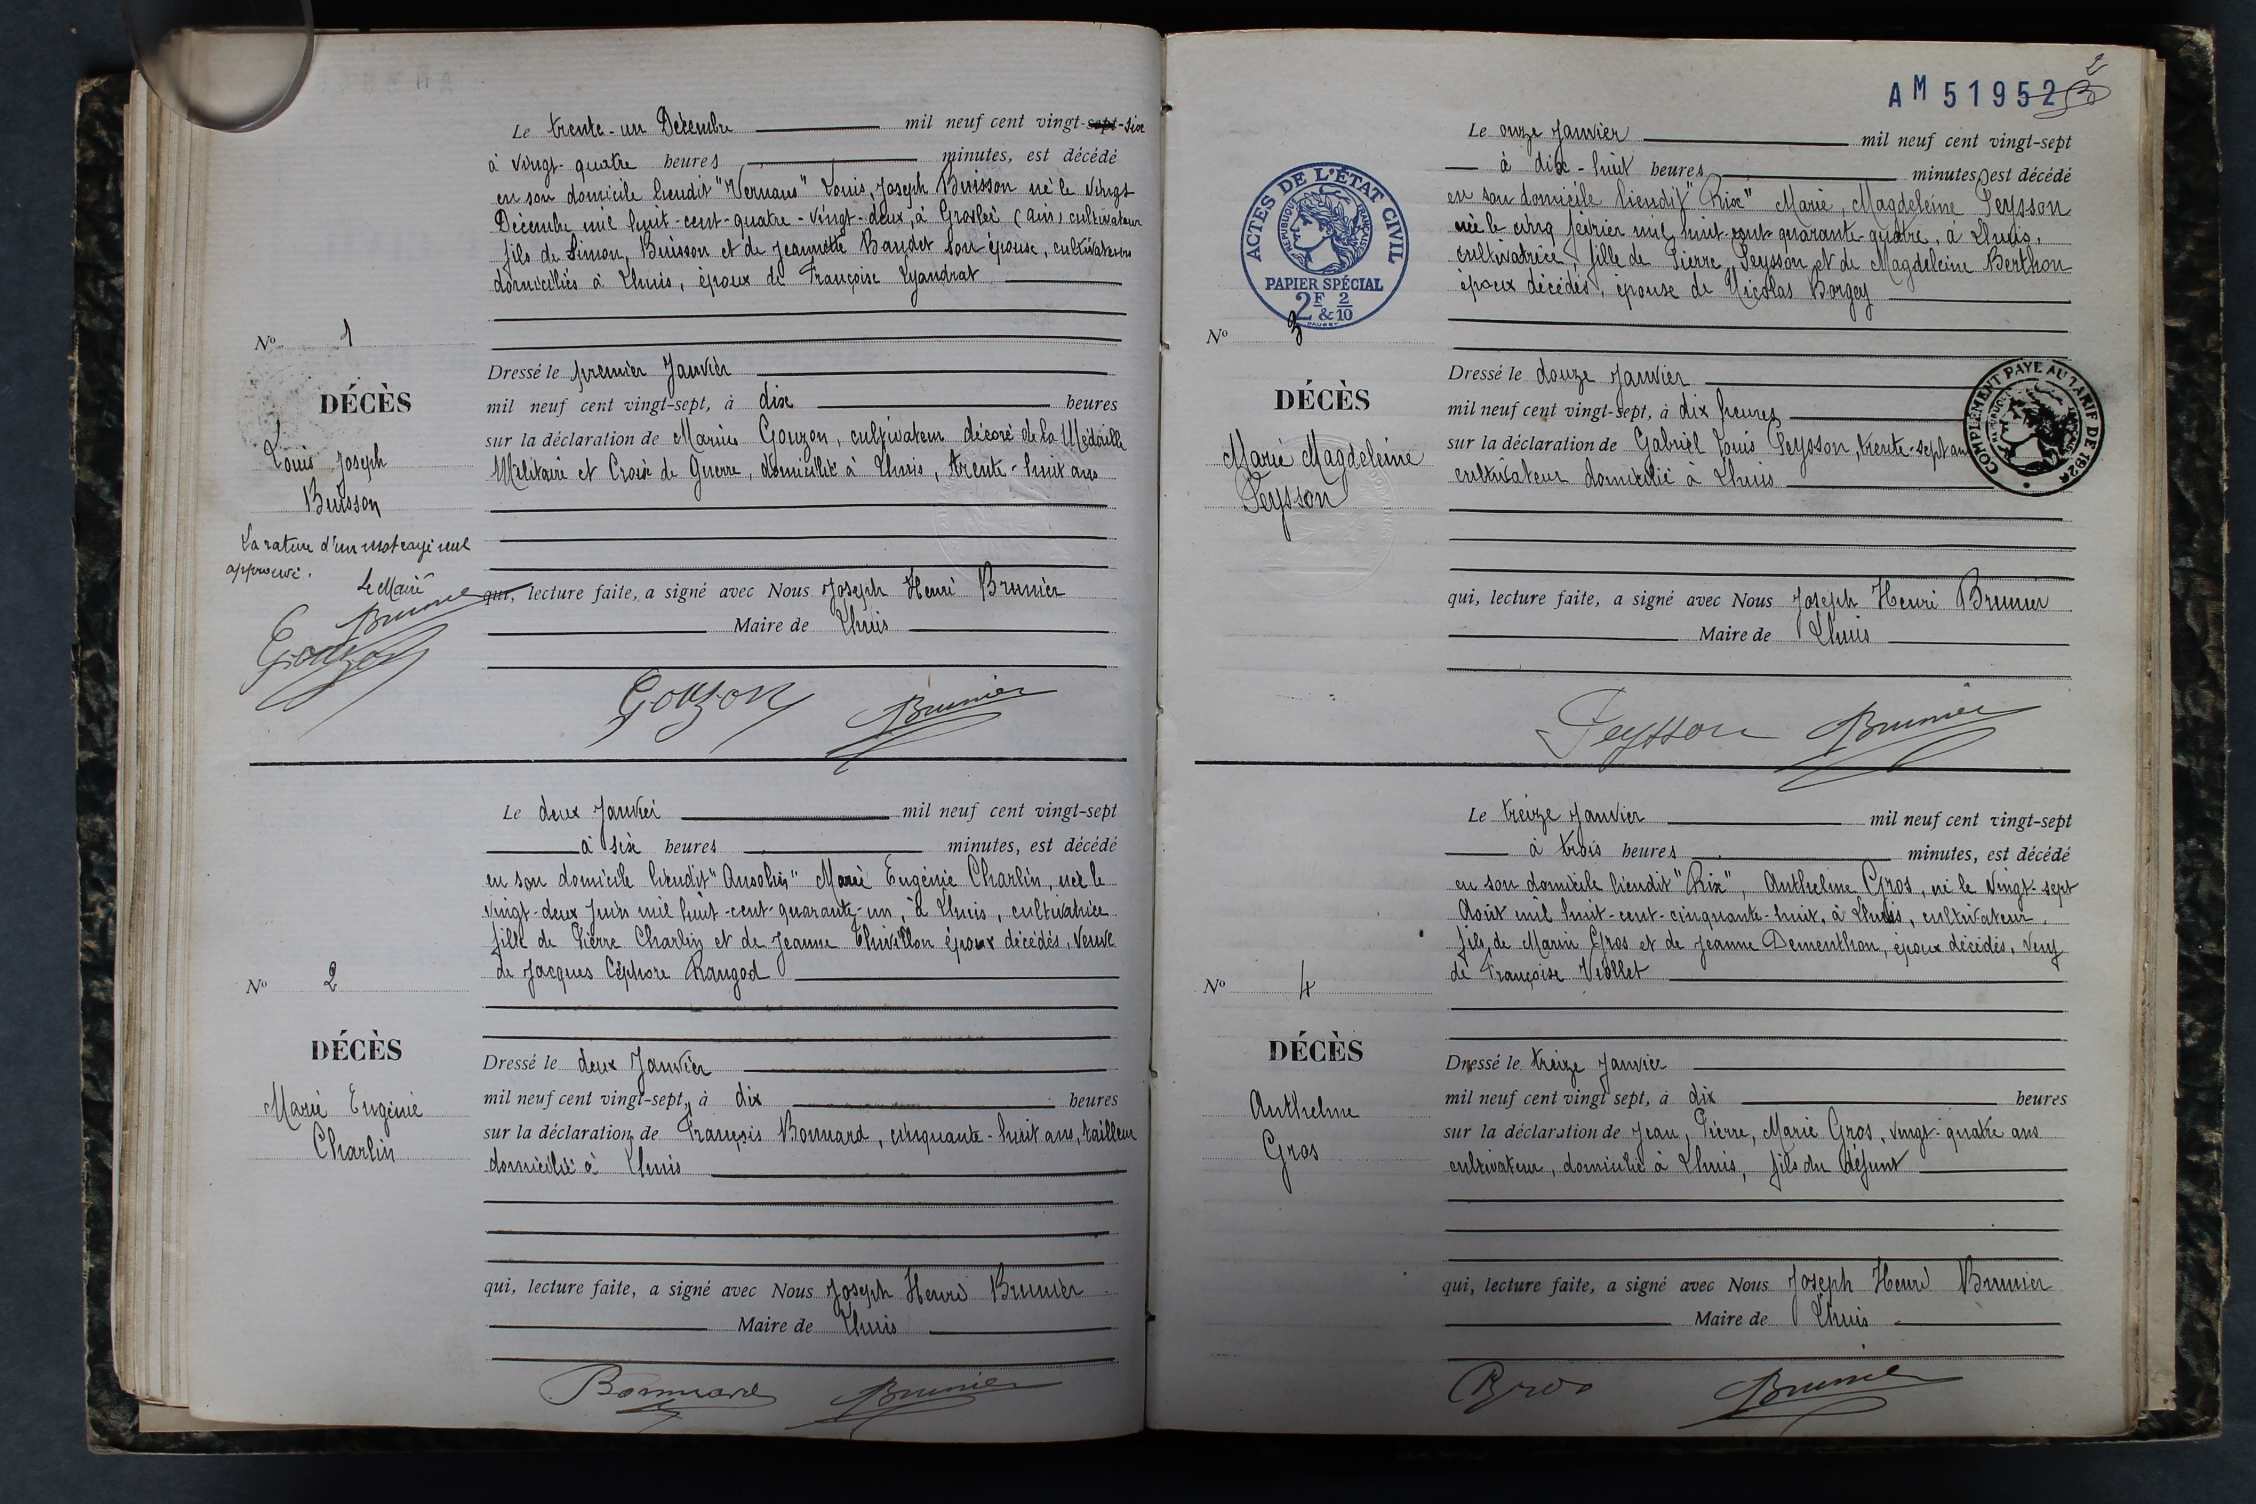 Le trente-un Décembre mil neuf cent vingt-sept-six
à vingt-quatre heures minutes, est décédé
en son domicile lieudit "Vernans" Louis, Joseph Buisson né le vingt
Décembre mil huit-cent-quatre-vingt-deux, à Groslée (Ain) cultivateur
fils de Simon, Buisson et de Jeannette Baudet son épouse, cultivateurs
domiciliés à Lhuis, époux de Françoise Lyandrat
No 1
DÉCÈS
Louis Joseph
Buisson
La rature d'un mot rayé nul
approuvé.
Le Maire
Brunier
Gouzon
Dressé le premier Janvier
mil neuf cent vingt-sept, à dix heures
sur la déclaration de Marius Gouzon, cultivateur décoré de la Médaille
Militaire et Croix de Guerre, domicilié à Lhuis, trente-huit ans
qui, lecture faite, a signé avec Nous Joseph Henri Brunier
Maire de Lhuis
Gouzon Brunier
Le deux Janvier mil neuf cent vingt-sept
à six heures minutes, est décédé
en son domicile lieudit "Ansolin" Marie Eugénie Charlin, née le
vingt-deux Juin mil huit-cent-quarante-un, à Lhuis, cultivatrice
fille de Pierre Charlin et de Jeanne Thuvillon époux décédés, veuve
de Jacques Céphore Rangod
No 2
DÉCÈS
Marie Eugénie
Charlin
Dressé le deux Janvier
mil neuf cent vingt-sept, à dix heures
sur la déclaration de François Bonnard, cinquante-huit ans, tailleur
domicilié à Lhuis
qui, lecture faite, a signé avec Nous Joseph Henri Brunier
Maire de Lhuis
Bonnard Brunier
AM 51952
2
ACTES DE L'ÉTAT CIVIL
RÉPUBLIQUE FRANÇAISE
PAPIER SPÉCIAL
2F & 2/10
Le onze Janvier mil neuf cent vingt-sept
à dix-huit heures minutes, est décédé
en son domicile lieudit "Rix" Marie, Magdeleine Peysson
née le cinq février mil huit-cent-quarante-quatre, à Lhuis,
cultivatrice, fille de Pierre, Peysson et de Magdeleine Berthon
époux décédés, épouse de Nicolas Borgey
No 3
DÉCÈS
Marie Magdeleine
Peysson
Dressé le douze Janvier
mil neuf cent vingt-sept, à dix heures
sur la déclaration de Gabriel Louis Peysson, trente-sept ans
cultivateur domicilié à Lhuis
COMPLÉMENT PAYÉ AU TARIF DE 1926
qui, lecture faite, a signé avec Nous Joseph Henri Brunier
Maire de Lhuis
Peysson Brunier
Le treize Janvier mil neuf cent vingt-sept
à trois heures minutes, est décédé
en son domicile lieudit "Rix", Anthelme Gros, né le vingt-sept
Août mil huit-cent-cinquante-huit, à Lhuis, cultivateur,
fils de Marin Gros et de Jeanne Dementhon, époux décédés, veuf
de Françoise Viollet
No 4
DÉCÈS
Anthelme
Gros
Dressé le treize Janvier
mil neuf cent vingt sept, à dix heures
sur la déclaration de Jean, Pierre, Marie Gros, vingt-quatre ans
cultivateur, domicilié à Lhuis, fils du défunt
qui, lecture faite, a signé avec Nous Joseph Henri Brunier
Maire de Lhuis
Gros Brunier